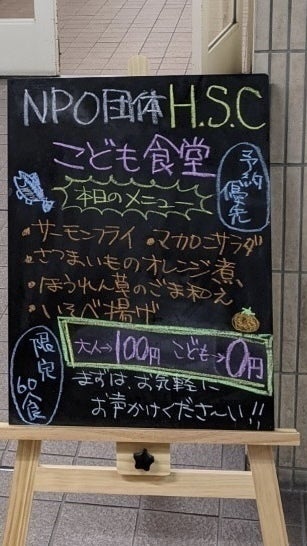 NPO団体 H.S.C
こども食堂
予約優先
本日のメニュー
・サーモンフライ ・マカロニサラダ
・さつまいものオレンジ煮
・ほうれん草のごま和え
・いそべ揚げ
大人→100円 こども→0円
限定60食
まずは、お気軽に
お声かけくださ〜い!!